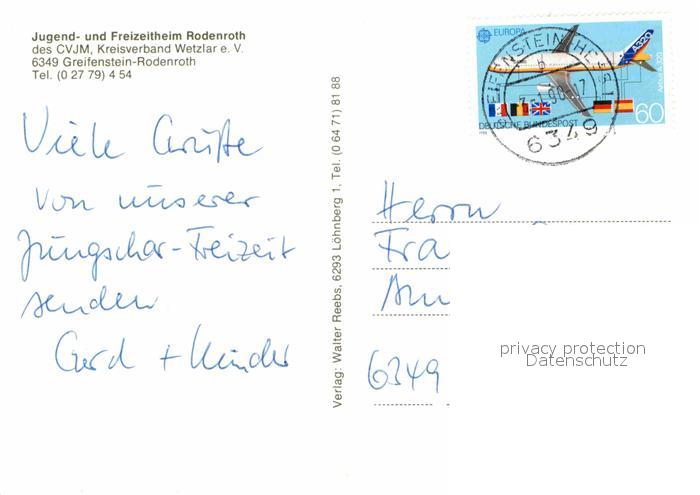 Jugend- und Freizeitheim Rodenroth
des CVJM, Kreisverband Wetzlar e. V.
6349 Greifenstein-Rodenroth
Tel. (0 27 79) 4 54
Viele Grüße
von unserer
Jungschar-Freizeit
senden
Gerd + Kinder
Verlag: Walter Reebs, 6293 Löhnberg 1, Tel. (0 64 71) 81 88
EUROPA
A320
Airbus A 320
60
DEUTSCHE BUNDESPOST
1988
GREIFENSTEIN, HESS 1
b
6349
Herrn
Fra
Am
6349
privacy protection
Datenschutz